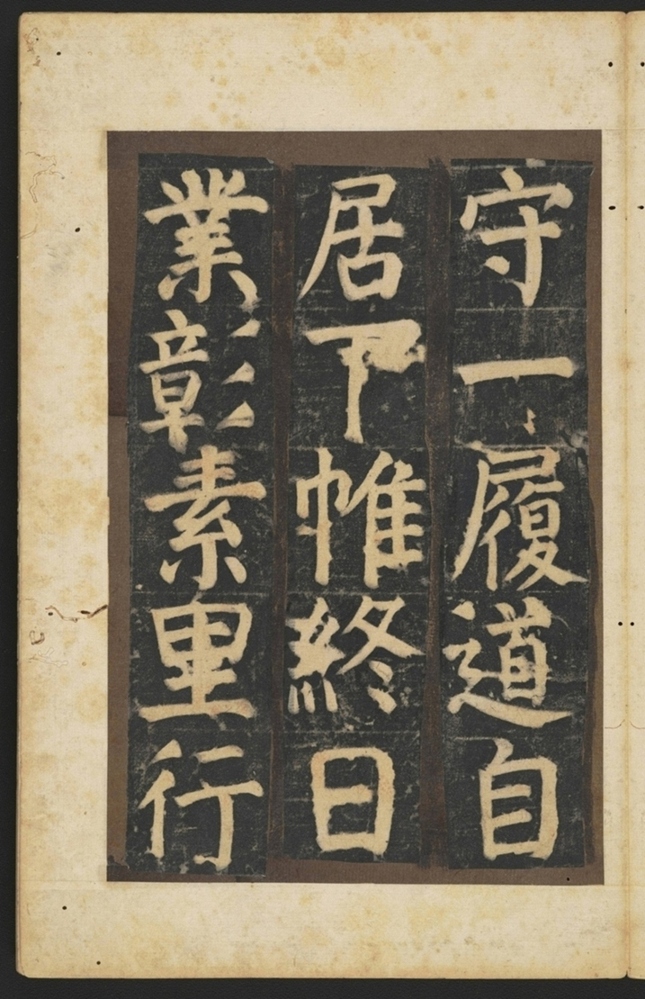 守一履道自
居下帷終日
業彰素里行